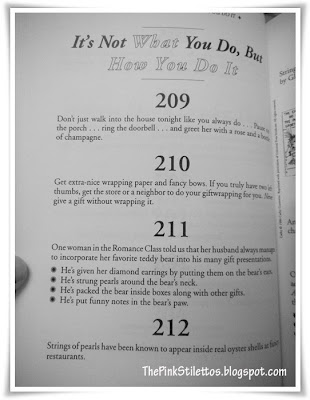 It's Not What You Do, But
How You Do It
209
Don't just walk into the house tonight like you always do . . . Pause on
the porch . . . ring the doorbell . . . and greet her with a rose and a bottle
of champagne.
210
Get extra-nice wrapping paper and fancy bows. If you truly have two left
thumbs, get the store or a neighbor to do your giftwrapping for you. Never
give a gift without wrapping it.
211
One woman in the Romance Class told us that her husband always manages
to incorporate her favorite teddy bear into his many gift presentations.
He's given her diamond earrings by putting them on the bear's ears.
He's strung pearls around the bear's neck.
He's packed the bear inside boxes along with other gifts.
He's put funny notes in the bear's paw.
212
Strings of pearls have been known to appear inside real oyster shells at
restaurants.
String
by G
An
ThePinkStilettos.blogspot.com